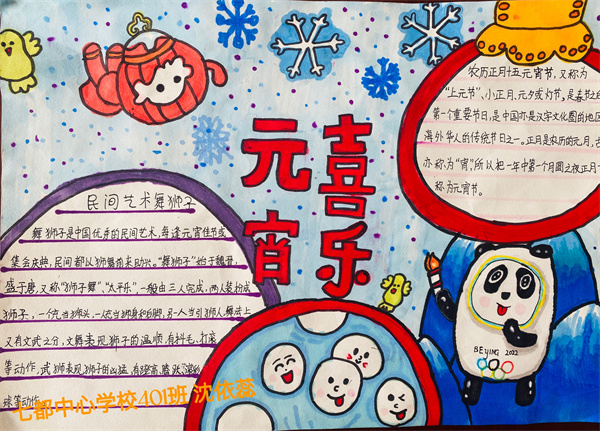 喜乐
元宵
农历正月十五元宵节，又称为
"上元节"，小正月、元夕或灯节，是春节之后
第一个重要节日，是中国亦是汉字文化圈的地区
海外华人的传统节日之一。正月是农历的元月，古
亦称为"宵"，所以把一年中第一个月圆之夜正月十
称为元宵节。
民间艺术舞狮子
舞狮子是中国优秀的民间艺术，每逢元宵佳节或
集会庆典，民间都以狮舞前来助兴。"舞狮子"始于魏晋，
盛于唐，又称"狮子舞"、"太平乐"，一般由三人完成，两人装扮成
狮子，一个充当狮头，一个充当狮身和后脚，另一人当引狮人舞法上
又有文武之分，文舞表现狮子的温顺，有抖毛、打滚
等动作，武狮表现狮子的凶猛，有腾跃
球等动作
BEIJING 2022
七都中心学校401班 沈依蕊